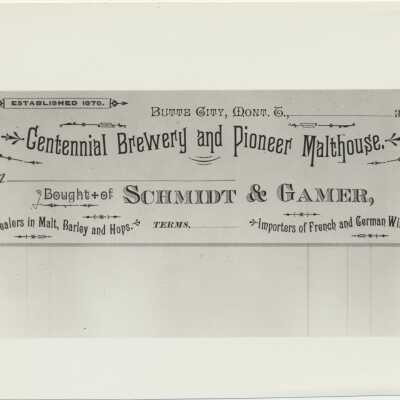 ESTABLISHED 1876.
BUTTE CITY, MONT. T.,
Centennial Brewery and Pioneer Malthouse.
Bought of SCHMIDT & GAMER,
Dealers in Malt, Barley and Hops. TERMS. Importers of French and German